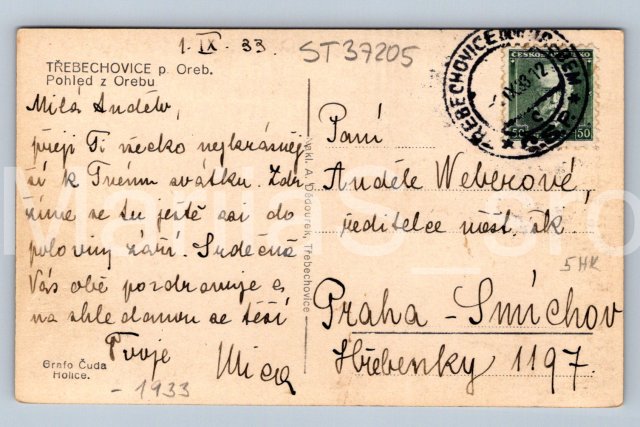 1. IX. 33.
ST37205
TŘEBECHOVICE p. Oreb.
Pohled z Orebu
Milá Andělo,
přeji Ti všecko nejkrásněj
ší k Tvému svátku. Zdr
žíme se tu ještě asi do
poloviny září. Srdečně
Vás obě pozdravuje a
na shledanou se těší
Tvoje
Grafo Čuda
Holice.
- 1933
Nakl. A. Dědourek, Třebechovice
TŘEBECHOVICE POD OREBEM
ČESKOSLOVENSKO
50 50
Paní
Anděle Weberové,
ředitelce měšť. šk
5 HK
Praha - Smíchov
Hřebenky 1197.